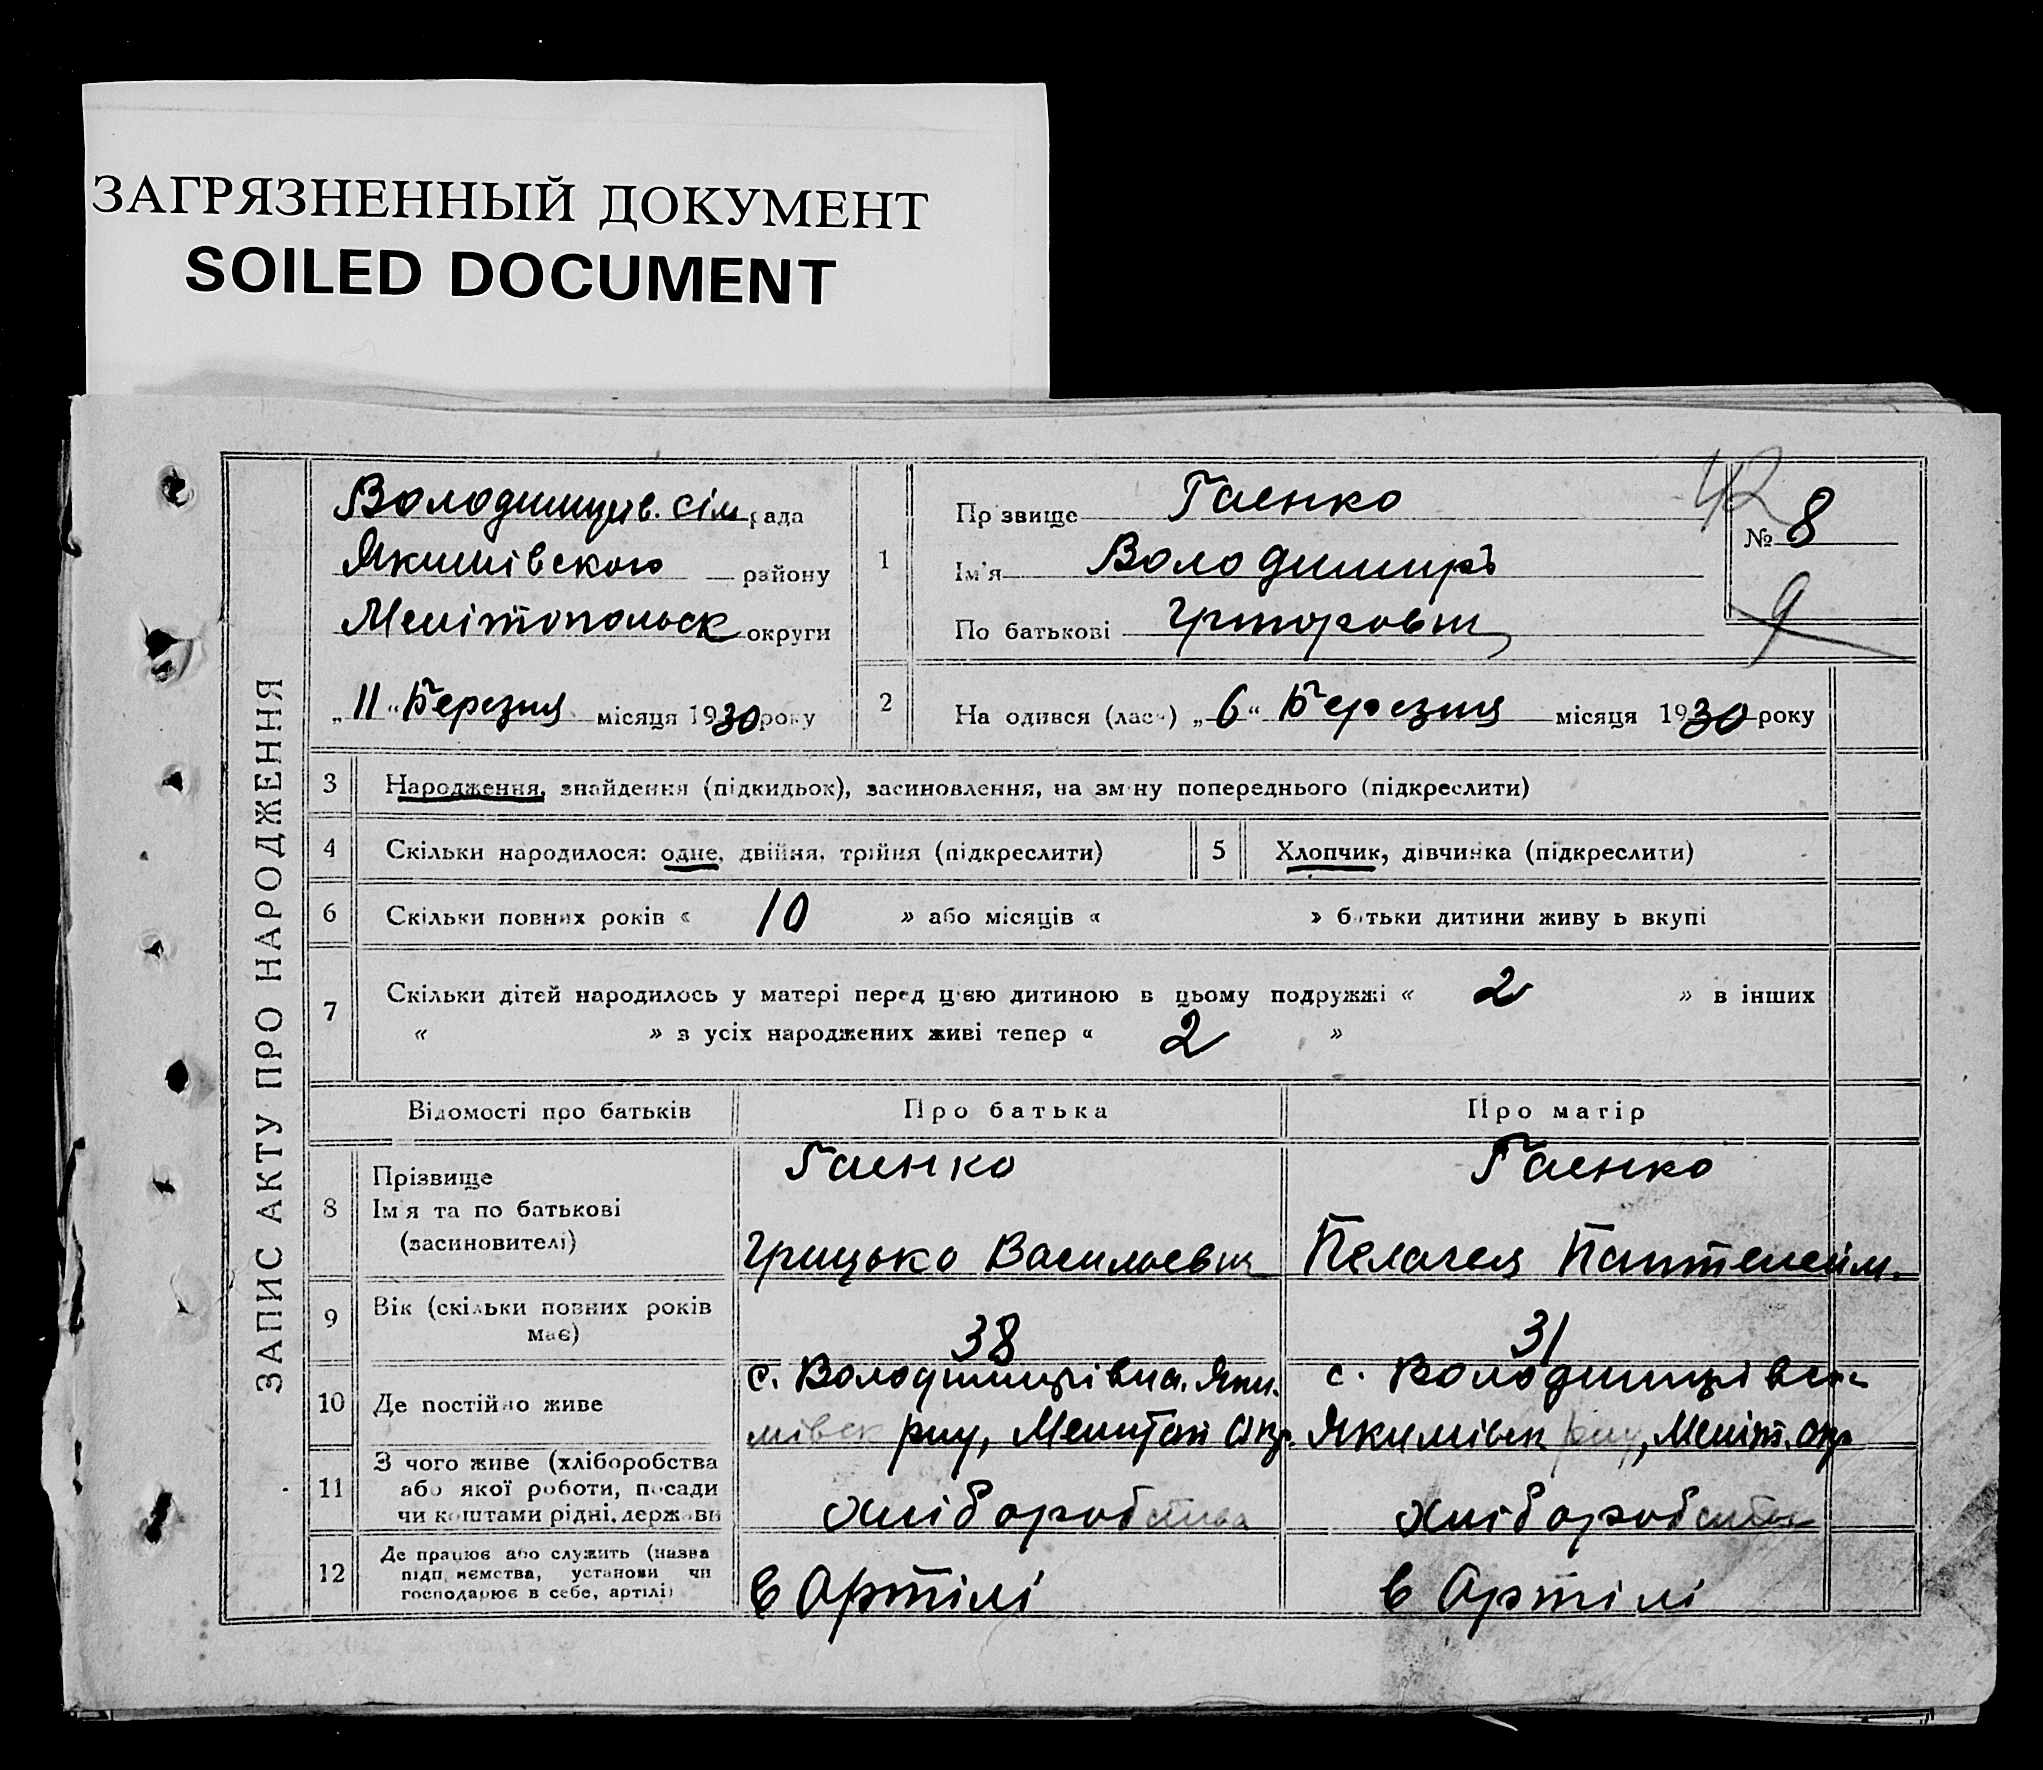 ЗАГРЯЗНЕННЫЙ ДОКУМЕНТ
SOILED DOCUMENT
ЗАПИС АКТУ ПРО НАРОДЖЕННЯ
Володимирів. сіл рада
Якимівского району
Мелітопольск округи
„11“ Березня місяця 1930 року
1
Прізвище Гаенко
Ім'я Володимиръ
По батькові Григорович
42
№ 8
9
2 На одився (лась) „6“ Березня місяця 1930 року
3 Народження, знайдення (підкидьок), засиновлення, на зміну попереднього (підкреслити)
4 Скільки народилося: одне, двійня, трійня (підкреслити)
5 Хлопчик, дівчинка (підкреслити)
6 Скільки повних років « 10 » або місяців « » батьки дитини живуть вкупі
7 Скільки дітей народилось у матері перед цією дитиною в цьому подружжі « 2 » в інших
« » з усіх народжених живі тепер « 2 »
Відомості про батьків Про батька Про матір
8 Прізвище
Ім'я та по батькові
(засиновителі)
Гаенко
Грицько Васильевич
Гаенко
Пелагея Пантелейм.
9 Вік (скільки повних років
має)
38
31
10 Де постійно живе
с. Володимирівка. Яки-
мівск р-ну, Меліт Окр.
с. Володимирівка
Якимівск р-ну, Меліт. Окр
11 З чого живе (хліборобства
або якої роботи, посади
чи коштами рідні, держави
хліборобства
хліборобства
12 Де працює або служить (назва
підприємства, установи чи
господарює в себе, артілі)
в Артілі
в Артілі